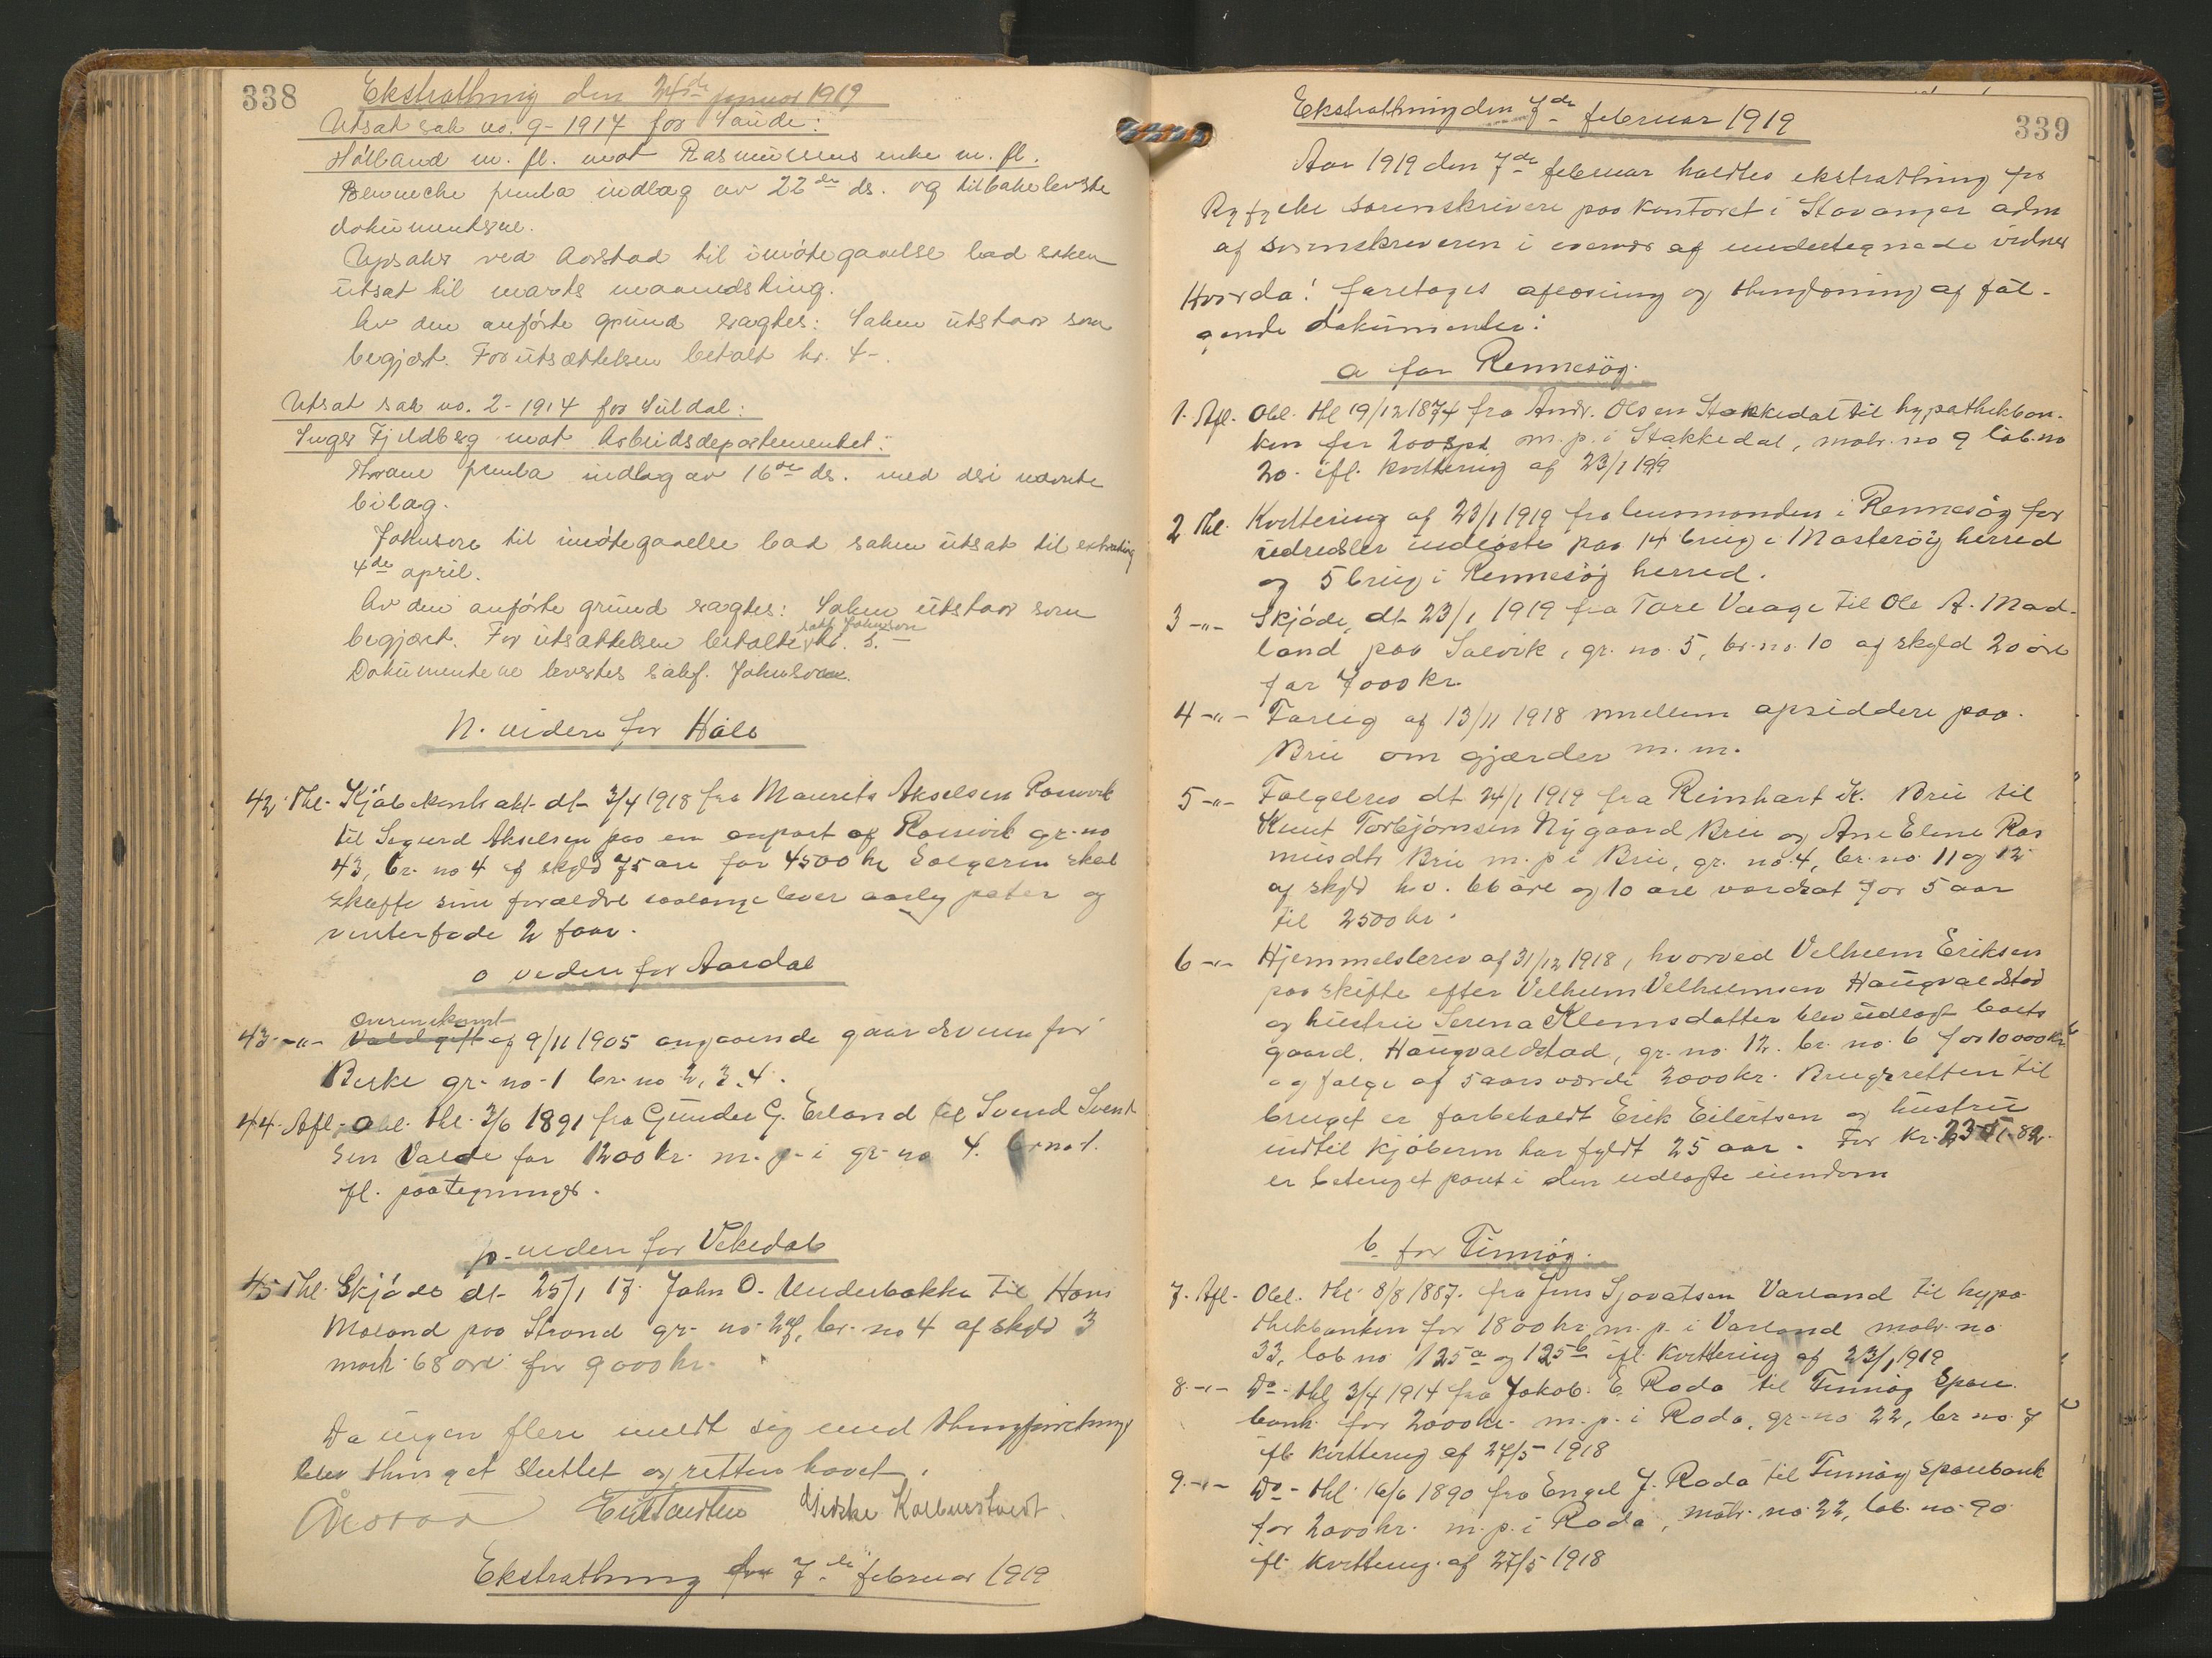 338
Ekstrathing den 24de januar 1919
Utsat sak no. 9-1917 for Saude:
Hólland m. fl. mot Rasmussens enke m. fl.
Benneche fremla indlæg av 22de ds. og tilbakeleverte
dokumenterne.
Upsaker ved Aarstad til imótegaaelse bad saken
utsat til marts maanedsting.
Av den anfórte grund vagtes: Saken utstaar som
begjært. For utsættelsen betalt kr. 4-.
Utsat sak no. 2-1914 for Suldal:
Inger Fjeldberg mot Arbeidsdepartementet:
Thrane fremla indlæg av 16de ds. med deri nævnte
bilag.
Johnsen til imótegaaelse bad saken utsat til extrating
4de april.
Av den anfórte grund vagtes: Saken utstaar som
begjært. For utsættelsen betalte sakf Johnson kr. 5.-
Dokumenterne levertes sakf. Johnson.
N. videre for Hóle
42. Thl. Kjóbekontrakt dt 3/4 1918 fra Maurits Akselsen
til Sigurd Akselsen paa en anpart af gr. no
43, br. no 4 af skyld 75 óre for 4500 kr Sælgeren skal
skaffe sine forældre saalænge lever aarlig poteter og
vinterfode 2 faar.
o videre for Aardal
43 -"- Overenskomst af 9/11 1905 angaaende gaardsveien for
Berke gr. no 1 br. no 2, 3, 4.
44. Afl. Obl. thl. 3/6 1891 fra Gunder G. Erland til Svend Svend
sen Valde for 1200 kr. m. p. i gr. no 4. br no 1.
ifl. paategninger.
p. videre for Vikedal
45 Thl. Skjóde dt 25/1 17. John O. Underbakke til Hans
Moland paa Strand gr. no. 27, br. no 4 af skyld 3
mark 68 óre for 9000 kr.
Da ingen flere meldt sig med thingforretninger
blev thinget sluttet og retten hævet.
Ekstrathing 7de februar 1919
339
Ekstrathing den 7de februar 1919
Aar 1919 den 7de februar holdtes ekstrathing for
Ryfylke sorenskriveri paa kontoret i Stavanger adm
af sorenskriveren i overvær af undertegnede vidner
Hvorda! foretoges aflæsning og thinglæsning af fól-
gende dokumenter:
a for Rennesöy.
1. Afl. Obl. thl 19/12 1874 fra Andr. Olsen Stakkedal til hypothekban-
ken for 200 spd. m. p. i Stakkedal, matr. no 9 löb. no
20. ifl. kvittering af 23/1 1919
2 Thl. Kvittering af 23/1 1919 fra lensmanden i Rennesöy for
udredsler indlöste paa 14 brug i Mosteröy herred
og 5 brug i Rennesöy herred.
3 -"- Skjóde, dt 23/1 1919 fra Tore Vaage til Ole A. Mad-
land paa Solvik, gr. no. 5, br. no. 10 af skyld 20 öre
for 7000 kr.
4 -"- Forlig af 13/11 1918 mellem opsiddere paa
Bru om gjærder m. m.
5 -"- Fólgebrev dt 24/1 1919 fra Reinhart K. Bru til
Knut Torbjörnsen Nygaard Bru og Ane Elene Ras
musdtr Bru m. p. i Bru, gr. no. 4, br. no. 11 og 12
af skyld h.v. 66 öre og 10 öre værdsat for 5 aar
til 2500 kr.
6 -"- Hjemmelsbrev af 31/12 1918, hvorved Velhelm Eriksen
paa skifte efter Velhelm Velhelmsen Haugvaldstad
og hustru Serena Klemsdatter blev udlagt boets
gaard, Haugvaldstad, gr. no. 12. br. no. 6 for 10000 kr
og fölge af 5 aars værdi 2000 kr. Brugsretten til
bruget er forbeholdt Erik Eilertsen og hustru
indtil kjöberen har fyldt 25 aar. For kr.
er betinget pant i den udlagte eiendom
b for Finnöy.
7. Afl. Obl. thl 8/8 1887. fra Jens Sjovatsen Varland til hypo-
thekbanken for 1800 kr. m. p. i Varland matr. no.
33, löb no 125a og 125b ifl. kvittering af 23/1 1919
8. -"- Do. thl 3/4 1914 fra Jakob E. Roda til Finnöy Spare
bank for 2000 kr. m. p. i Roda, gr. no 22, br. no. 7
ifl kvittering af 27/5 1918
9. -"- Do. thl. 16/6 1890 fra Engel J. Roda til Finnöy Sparebank
for 2000 kr. m. p. i Roda, matr. no. 22, löb. no. 90
ifl. kvittering af 27/5 1918